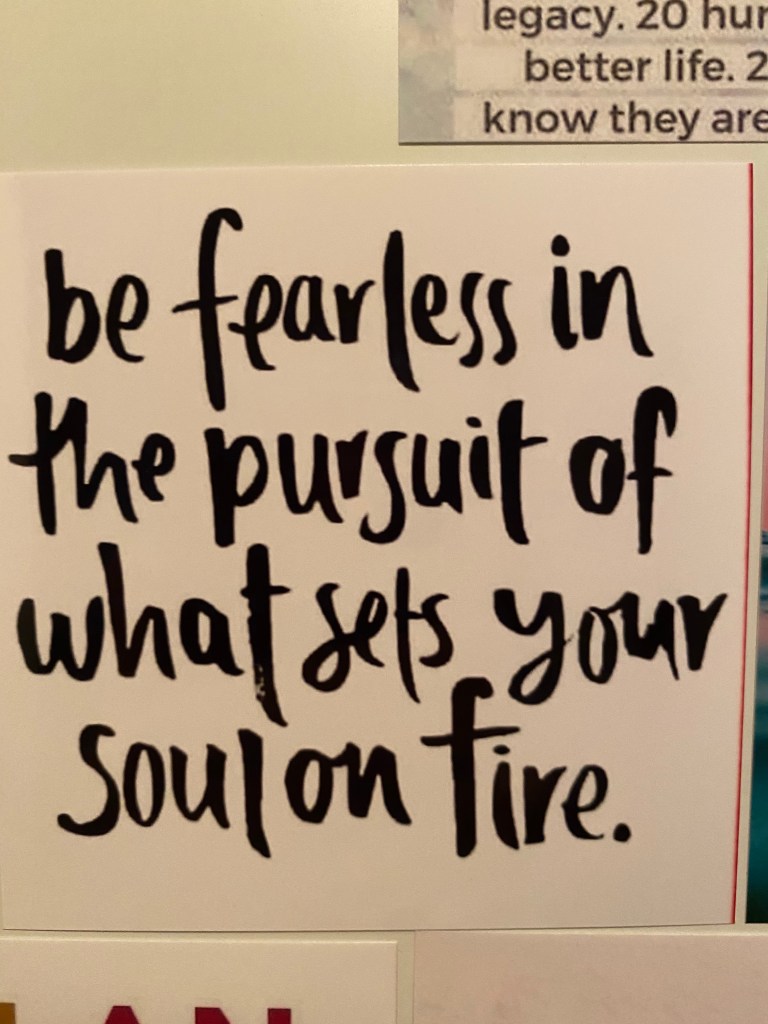 legacy. 20
better life. 2
know they are
be fearless in
the pursuit of
what sets your
soul on fire.
AN